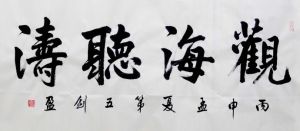 觀海聽濤
丙申孟夏第五劍盈